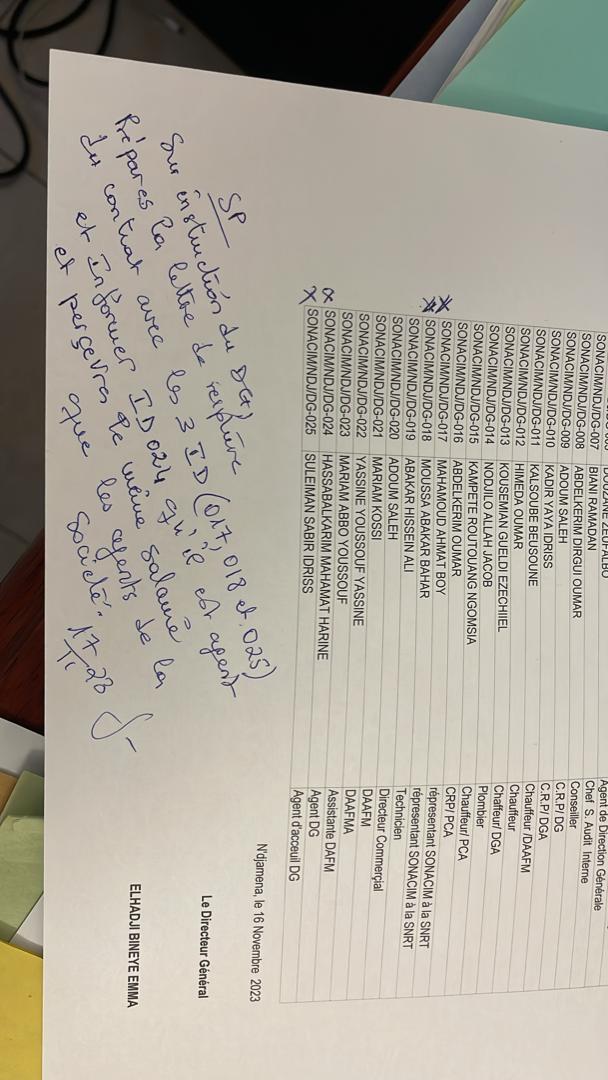 Agent de Direction Générale
SONACIM/NDJ/DG-007 BIANI RAMADAN Chef S. Audit Interne
SONACIM/NDJ/DG-008 ABDELKERIM DIRGUI OUMAR Conseiller
SONACIM/NDJ/DG-009 ADOUM SALEH C.R.P/ DG
SONACIM/NDJ/DG-010 KADIR YAYA IDRISS C.R.P/ DGA
SONACIM/NDJ/DG-011 KALSOUBE BELISOUNE Chauffeur /DAAFM
SONACIM/NDJ/DG-012 HIMEDA OUMAR Chauffeur
SONACIM/NDJ/DG-013 KOUSEMIAN GUELDI EZECHIIEL Chaffeur/ DGA
SONACIM/NDJ/DG-014 NODJILO ALLAH JACOB Plombier
SONACIM/NDJ/DG-015 KAMPETE ROUTOUANG NGOMSIA Chauffeur/ PCA
SONACIM/NDJ/DG-016 ABDELKERIM OUMAR CRP/ PCA
SONACIM/NDJ/DG-017 MAHAMOUD AHMAT BOY réprésentant SONACIM à la SNRT
SONACIM/NDJ/DG-018 MOUSSA ABAKAR BAHAR réprésentant SONACIM à la SNRT
SONACIM/NDJ/DG-019 ABAKAR HISSEIN ALI Technicien
SONACIM/NDJ/DG-020 ADOUM SALEH Directeur Commercial
SONACIM/NDJ/DG-021 MARIAM KOSSI DAAFM
SONACIM/NDJ/DG-022 YASSINE YOUSSOUF YASSINE DAAFMA
SONACIM/NDJ/DG-023 MARIAM ABBO YOUSSOUF Assistante DAFM
SONACIM/NDJ/DG-024 HASSABALKARIM MAHAMAT HARINE Agent DG
SONACIM/NDJ/DG-025 SULEIMAN SABIR IDRISS Agent d'acceuil DG
N'djamena, le 16 Novembre 2023
Le Directeur Général
ELHADJI BINEYE EMMA
SP
Sur instruction du DG,
Prépares la lettre de
du contrat avec les 3 ID (017, 018 et 025)
et Informer ID024 qu'il est agent
et percevra le même salaire
que les agents de la
Société.